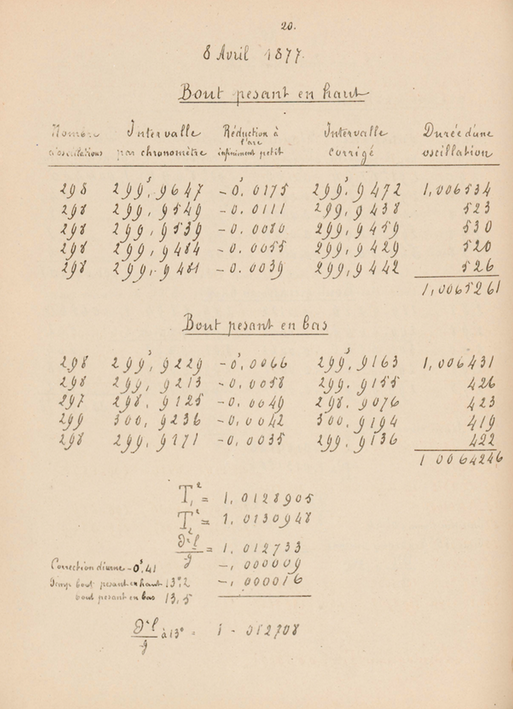 20.
8 Avril 1877.
Bout pesant en haut
Nombre d'oscillations Intervalle par chronomètre Réduction à l'arc infiniment petit Intervalle corrigé Durée d'une oscillation
298 299ˢ,9647 -0ˢ.0175 299ˢ.9472 1,006534
298 299,9549 -0.0111 299,9438 523
298 299,9539 -0.0080 299,9459 530
298 299,9484 -0.0055 299,9429 520
298 299,9481 -0.0039 299,9442 526
1,0065261
Bout pesant en bas
298 299ˢ,9229 -0ˢ,0066 299ˢ,9163 1,006431
298 299,9213 -0,0058 299.9155 426
297 298,9125 -0,0049 298.9076 423
299 300,9236 -0,0042 300.9194 419
298 299,9171 -0,0035 299.9136 422
1 0064246
T₁² = 1,0128905
T₂² = 1,0130948
∂²l/g = 1,012733
Correction diurne -0ˢ,41 -,000009
Temp bout pesant en haut 13°,2 -,000016
bout pesant en bas 13,5
∂²l/g à 13° = 1-012708